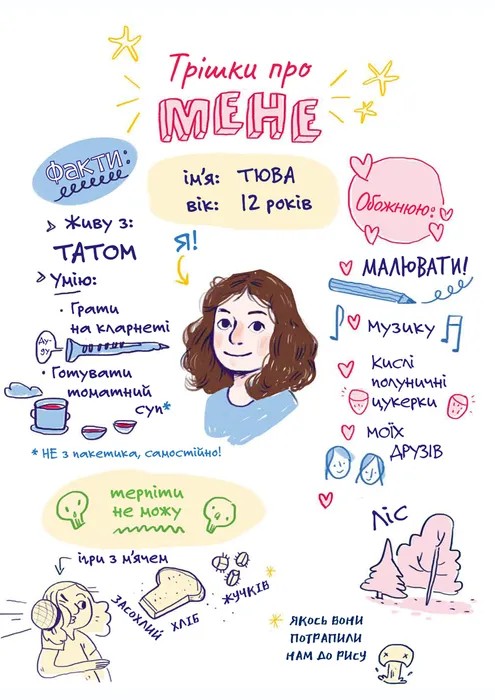 Трішки про
МЕНЕ
ім'я: ТЮВА
вік: 12 років
Факти:
Живу з:
ТАТОМ
Умію:
· Грати
на кларнеті
Ду-
ду
· Готувати
томатний
суп*
* НЕ з пакетика, самостійно!
Я!
Обожнюю:
МАЛЮВАТИ!
МУЗИКУ
Кислі
полуничні
цукерки
МОЇХ
ДРУЗІВ
ЛІС
терпіти
не можу
ігри з м'ячем
ЗАСОХЛИЙ
ХЛІБ
ЖУЧКІВ*
* ЯКОСЬ ВОНИ
ПОТРАПИЛИ
НАМ ДО РИСУ